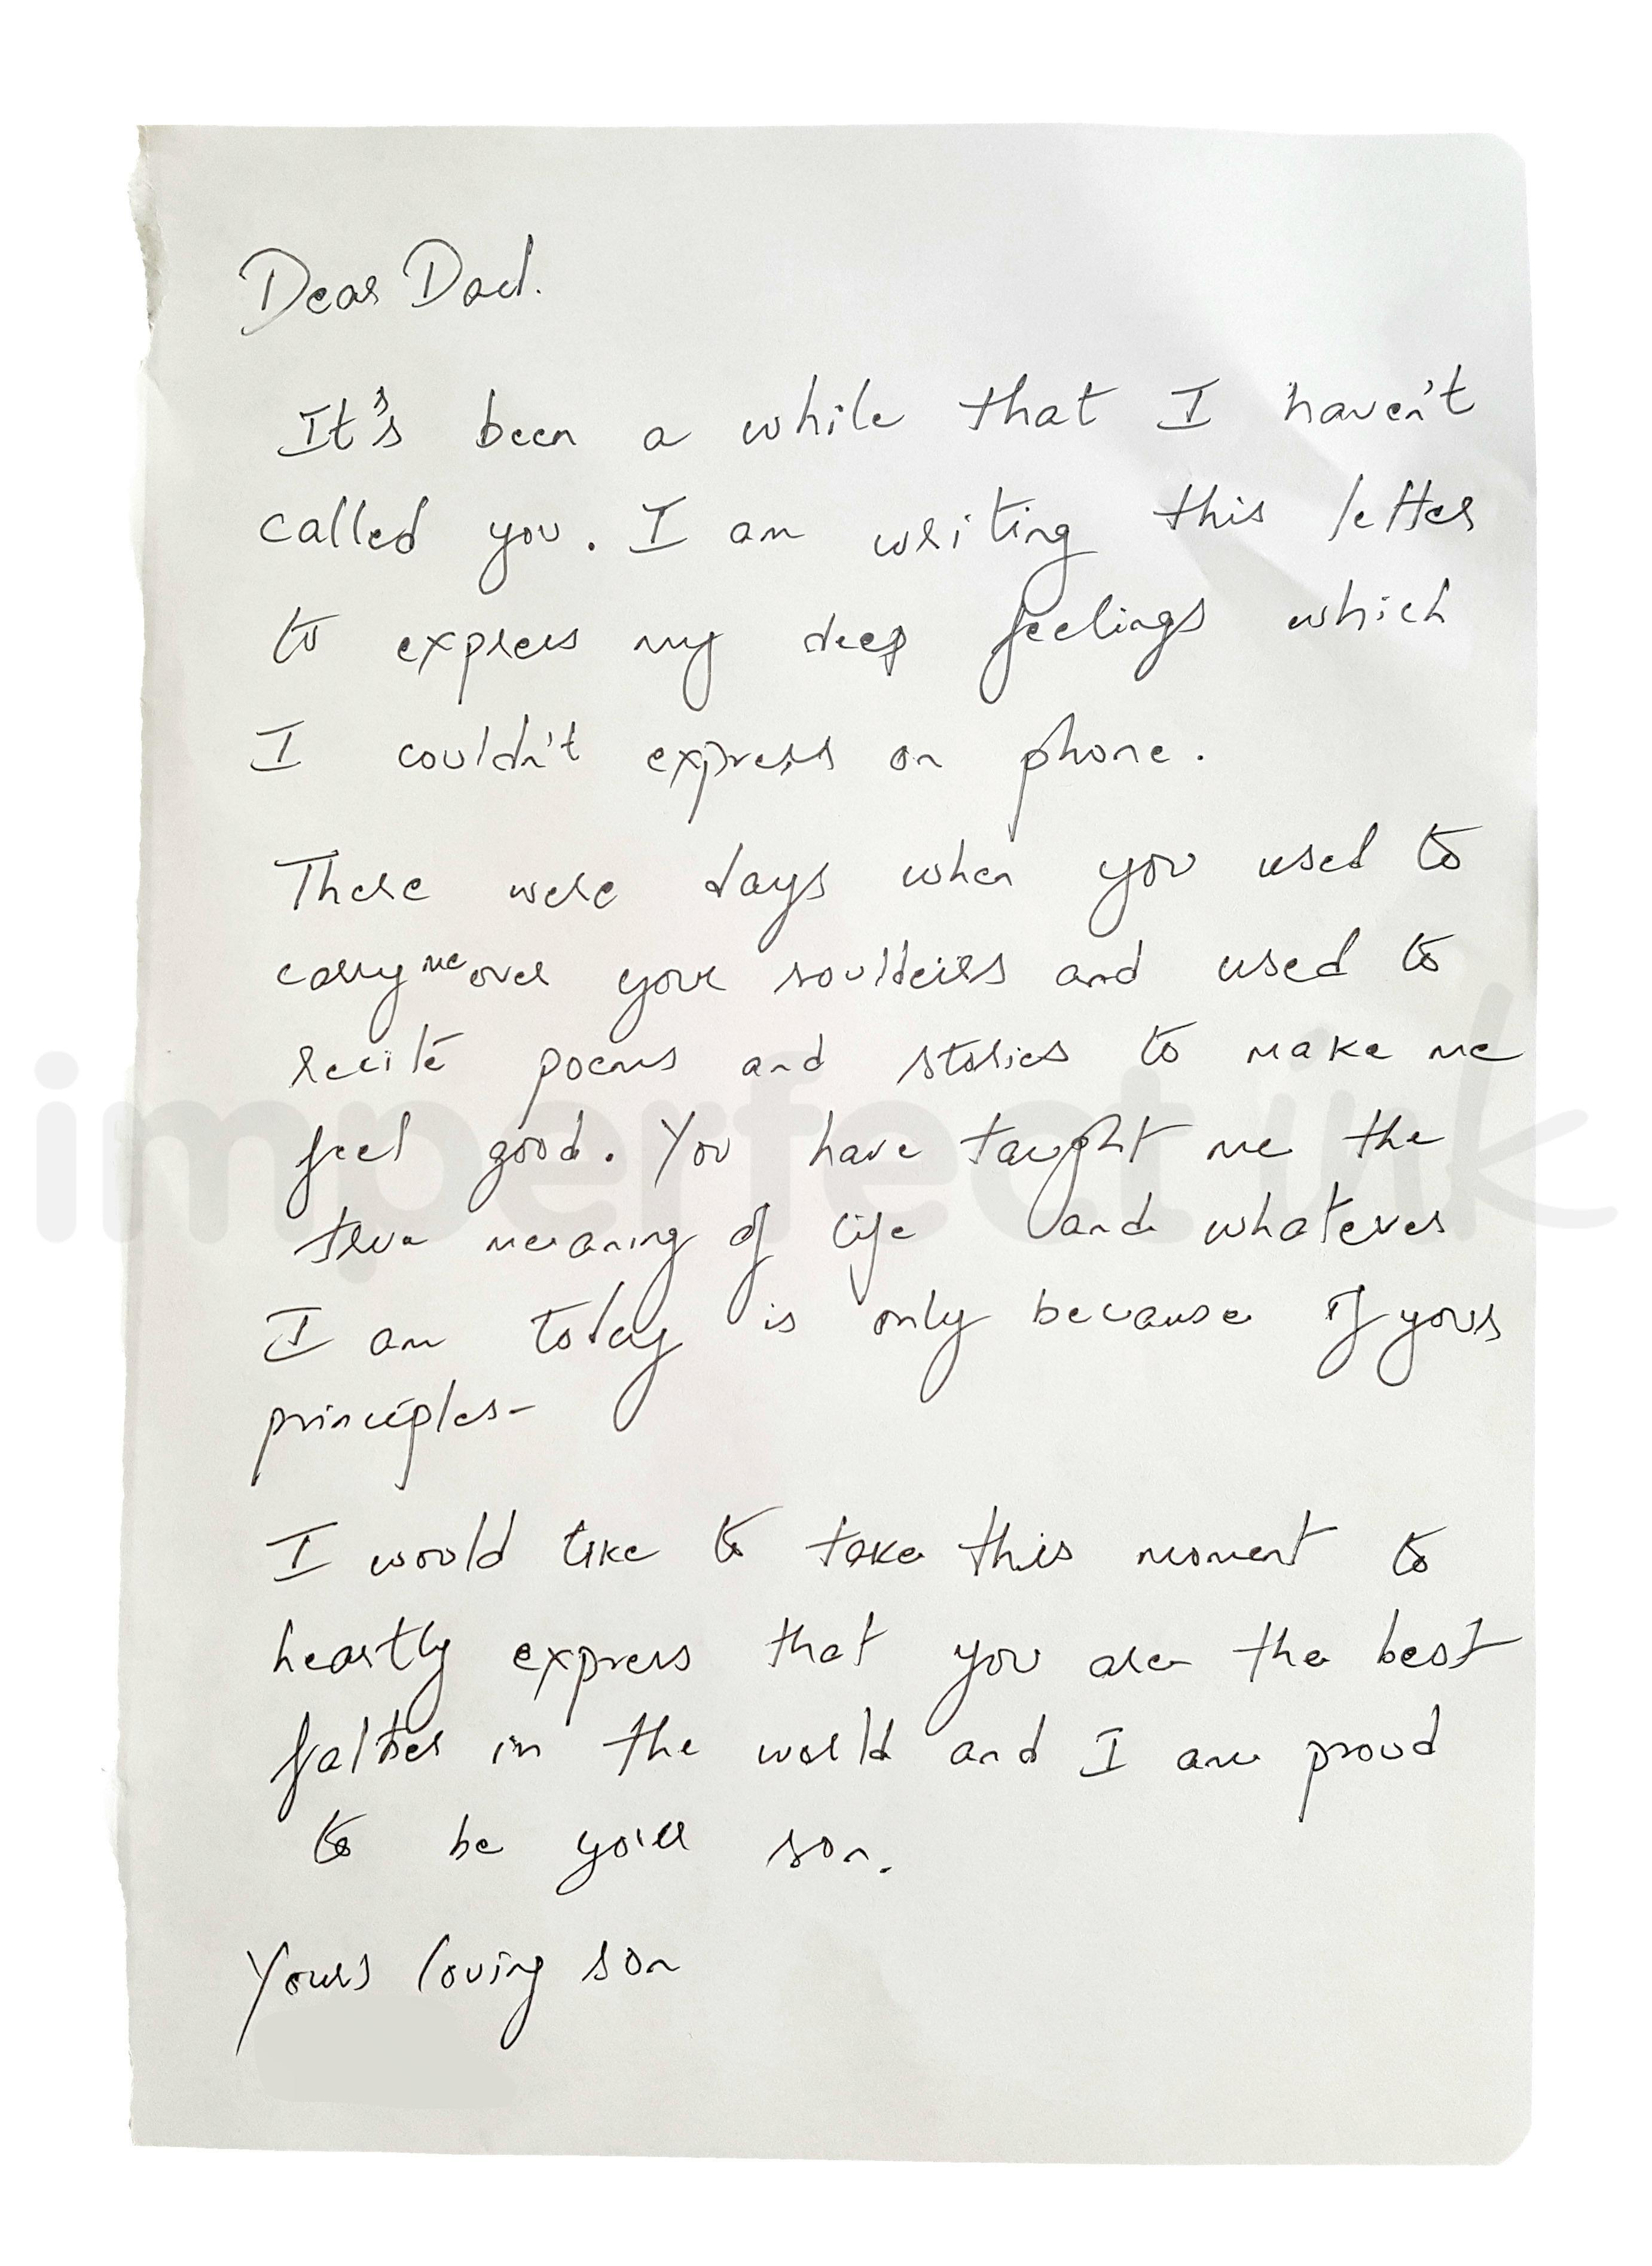 Dear Dad.
It's been a while that I haven't
called you. I am writing this letter
to express my deep feelings which
I couldn't express on phone.
There were days when you used to
carry me over your souldeirs and used to
recite poems and stories to make me
feel good. You have taught me the
true meaning of life and whatever
I am today is only because of yours
principles-
I would like to take this moment to
heartly express that you are the best
father in the world and I am proud
to be your son.
Yours loving son
imperfect ink